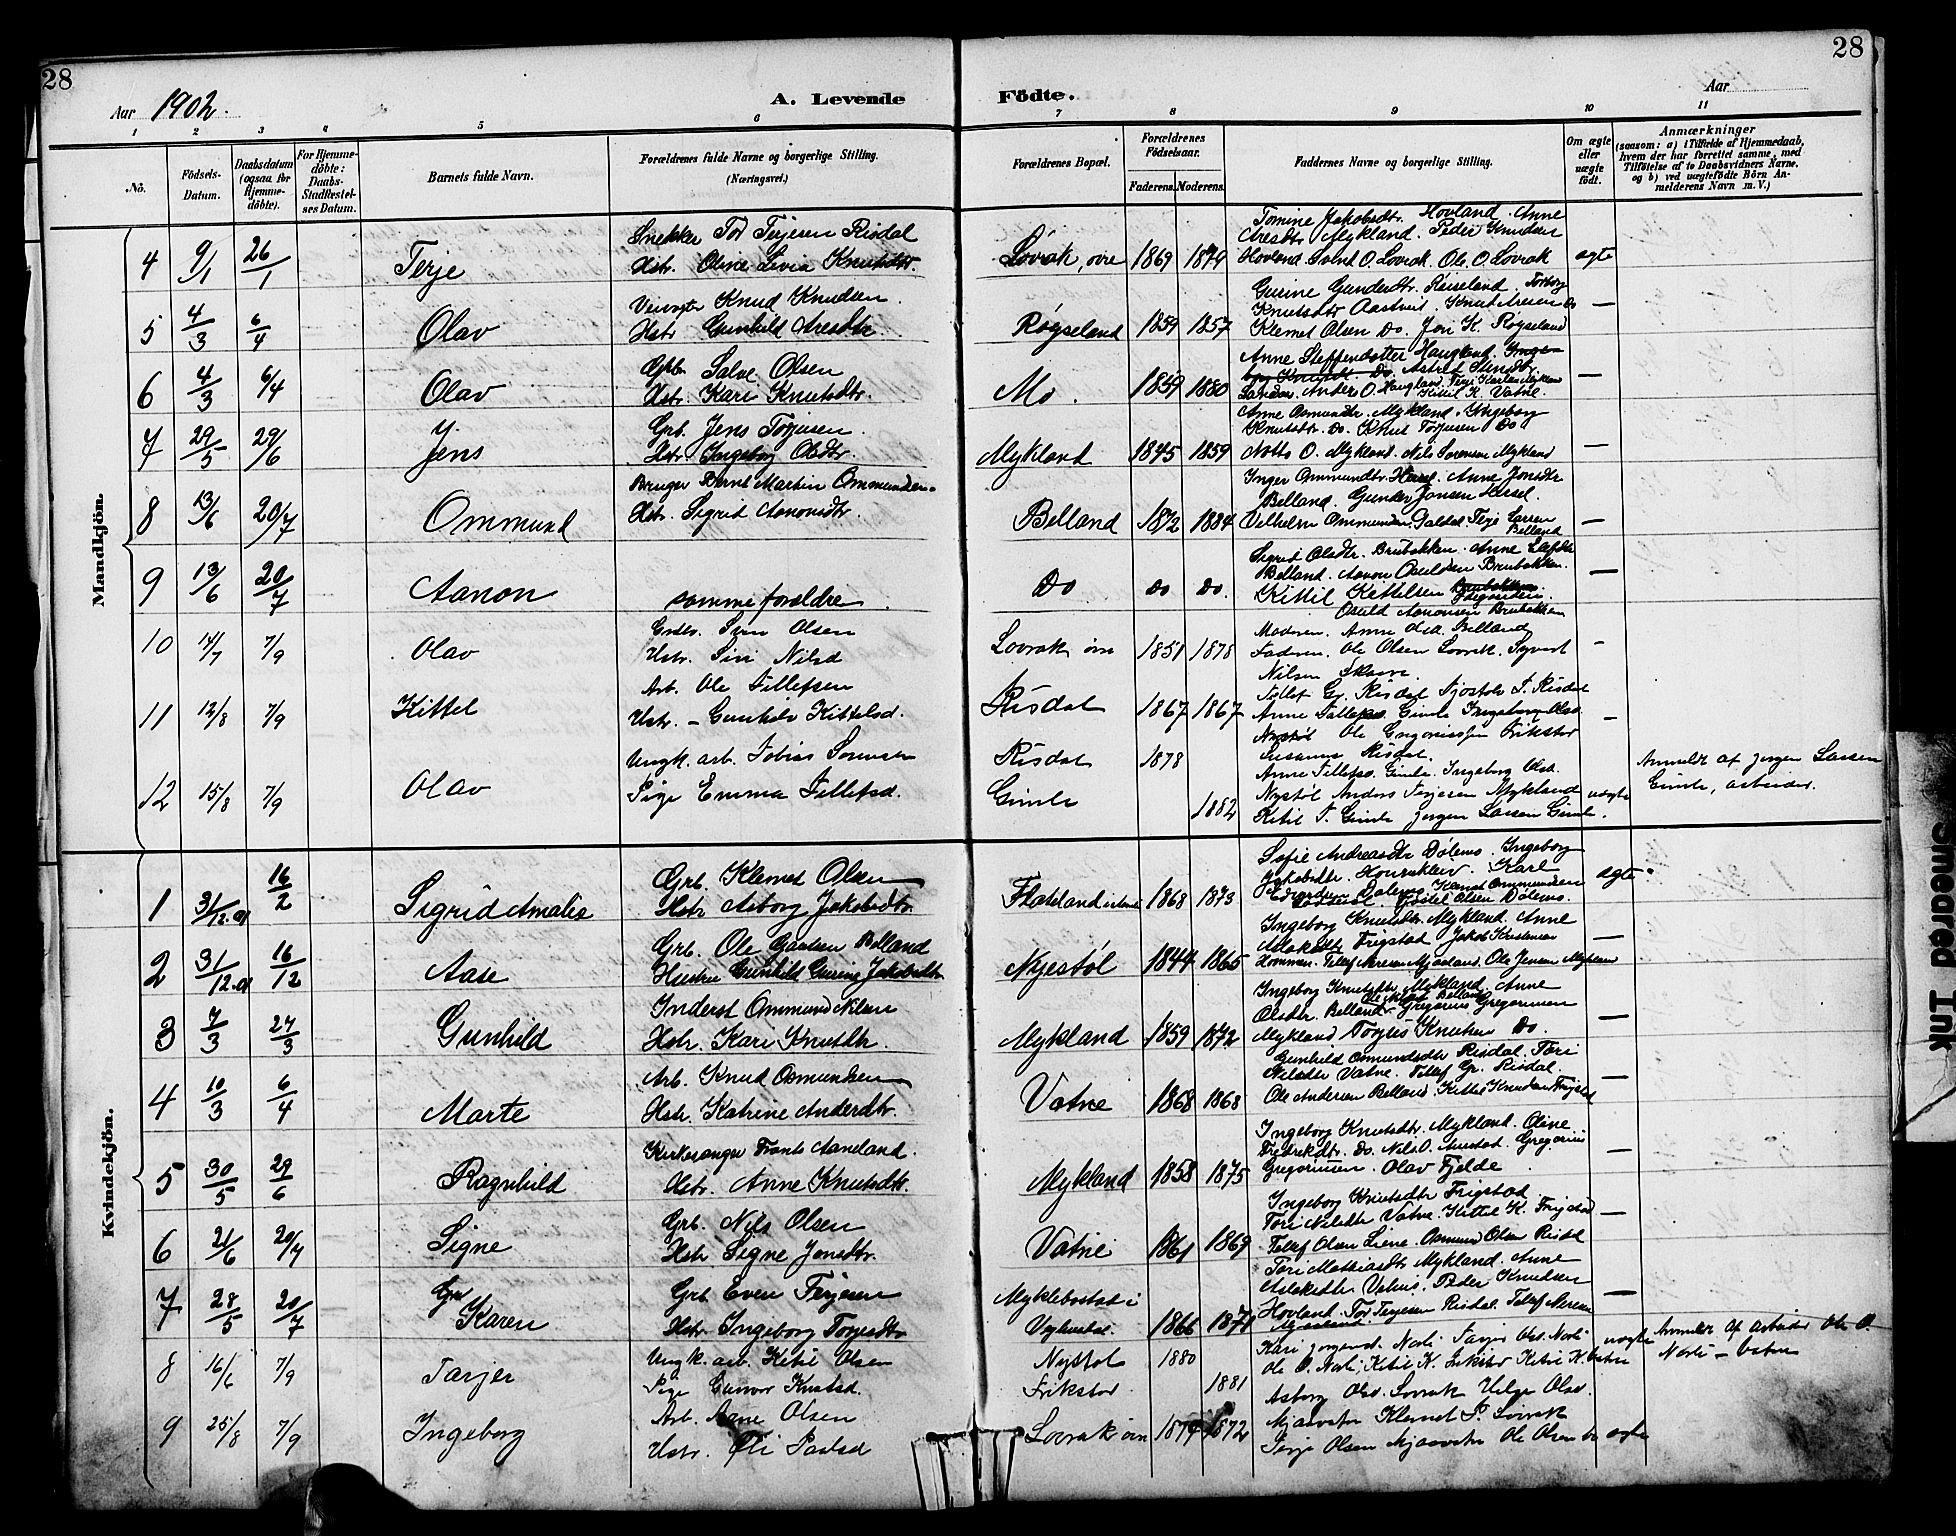 28
28
Aar 1902.
A. Levende
Födte.
Aar
1 2 3 4 5 6 7 8 9 10 11
No.
Födsels-
Datum.
Daabsdatum
(ogsaa for
Hjemme-
döbte).
For Hjemme-
döbte:
Daabs-
Stadfæstel-
ses Datum.
Barnets fulde Navn.
Forældrenes fulde Navne og borgerlige Stilling.
(Næringsvei.)
Forældrenes Bopæl.
Forældrenes
Födselsaar.
Faderens. Moderens.
Faddernes Navne og borgerlige Stilling.
Om ægte
eller
uægte
født.
Anmærkninger
(saasom: a) i Tilfælde af Hjemmedaab,
hvem der har forrettet samme, med
Tilföielse af to Daabsvidners Navne,
og b) ved uægtefödte Börn An-
melderens Navn m. V.)
Mandkjön.
4 9/1 26/1 Terje
Snekker Tor Terjesen Risdal
Hstr. Oline Livia Knutsdtr.
Lövrak, övre 1869 1879
Tomine Jakobsdtr. Hovland. Anne
Aresdtr Mykland. Peder Knudsen
Hovland. Salve O. Lovrak. Ole O. Lovrak
ægte
5 4/3 6/4 Olav
Veivogter Knud Knudsen.
Hstr. Gunhild Aresdtr
Røyseland 1859 1857
Gurine Gundersdtr. Røiseland. Torborg
Knutsdtr Aastveit. Knut Aresen Do
Klemet Olsen Do. Jon K. Røyseland
—
6 4/3 6/4 Olav
Grb. Salve Olsen
Hstr. Kari Knutsdtr.
Mo. 1859 1880
Anne Steffensdatter Haugland. Inge-
borg Knutsdtr Do.
Anders O. Haugland. Kittil K. Vatne.
—
7 29/5 29/6 Jens
Grb. Jens Torjusen.
Hstr. Ingeborg Olsdtr.
Mykland 1845 1859
Anne Osmundsdtr. Mykland. Ingeborg
Knutsdtr. Do. Knut Torjusen Do
Notto O. Mykland. Nils Sorensen Mykland
—
8 13/6 20/7 Ommund
Bruger Bernt Martin Ommundsen.
Hstr. Sigrid Aanonsdtr.
Belland 1872 1884
Inger Ommundsdtr. Hessel. Anne Jonsdtr
Belland. Gunder Jonsen Hessel.
Vilhelm Ommundsen. Terje Larsen
Belland
—
9 13/6 20/7 Aanon
samme forældre.
Do Do Do.
Sigrid Olsdtr. Brubakken. Anne
Belland. Aanon Osuldsen Brubakken.
Kittil Kittelsen
Osuld Aanonsen Brubakken
—
10 14/7 7/9 Olav
Grbr. Sven Olsen
Hstr. Siri Nilsd
Lovrak övre 1851 1878
Moderen. Anne Olsd. Belland
Faderen. Ole Olsen Lovrak. Syvert
Nilsen
-
11 12/8 7/9 Kittel
Arb. Ole Tellefsen
Hstr. - Gunhild Kittelsd.
Risdal 1867 1867
Tellef Gr. Risdal Tjostolv T. Risdal
Anne Tellefsd. Gimle Ingeborg Olsd.
Nystöl Ole Frikstad
-
12 15/8 7/9 Olav
Ungk. arb. Tobias Sorensen
Pige Emma Tellefsd.
Risdal 1878
Gimle 1882
Susanna Risdal.
Anne Tellefsd. Gimle. Ingeborg Olsd.
Nystöl Anders Terjesen Mykland
Ketil T. Gimle Jorgen Larsen Gimle.
uægte
Anmeldt af Jorgen Larsen
Gimle, arbeider.
Kvindekjön.
1 31/12.01 16/2 Sigrid Amalie
Grb. Klemet Olsen
Hstr Asborg Jakobsdtr.
Flateland 1868 1873
Sofie Andreasdtr Dölemo. Ingeborg
Jakobsdtr. Karl
Edvardsen Dölemo. Klemet Ommundsen
Kjöstel Olsen Dölemo.
ægte
2 31/12.01 16/12 Aase
Grb. Ole Belland
Hustru Gunhild Gurine Jakobsdtr
Nyestöl 1844 1865
Ingeborg Knutsdtr. Mykland. Anne
Aslaksdtr Frigstad Jakob Kristensen
Tellef Ole Jensen Mykland
—
3 7/3 27/3 Gunhild
Inderst Ommund Nilsen
Hstr. Kari Knutsdtr.
Mykland 1859 1872
Ingeborg Knutsdtr Mykland. Anne
Olsdtr. Belland. Gregorius Gregoriusen
Mykland Torjus Knutsen Do.
—
4 10/3 6/4 Marte
Arb. Knud Osmundsen
Hstr. Katrine Andersdtr.
Vatne 1868 1868
Gunhild Osmundsdtr Risdal. Tori
Nilsdtr Vatne. Tellef Gr. Risdal.
Ole Andersen Belland. Kittel Knudsen Frigstad
—
5 30/5 29/6 Ragnhild
Kirkesanger Frants Aaneland.
Hstr. Anne Knutsdtr.
Mykland 1858 1875
Ingeborg Knutsdtr. Mykland. Oline
Fredrikdtr. Do. Nils O. Gregorius
Gregoriusen. Olav Fjelde
—
6 21/6 20/7 Signe
Grb. Nils Olsen
Hstr. Signe Jonsdtr.
Vatne 1861 1869
Ingeborg Knutsdtr Frigstad
Tori Nilsdtr Vatne. Kittel K. Frigstad
Tellef Olsen Osmund Olsen Risdal
—
7 28/5 20/7 Karen
Grb. Even Terjesen
Hstr. Ingeborg Torjusdtr
Myklebostad i
Vegusdal. 1866 1871
Tori Mathiasdtr Mykland. Anne
Aslaksdtr. Vatne. Peder Knudsen
Hovland. Tor Terjesen Risdal. Tellef
—
8 16/6 7/9 Tarjer
Ungk. arb. Ketil Olsen
Pige Gunvor Knutsd.
Nystöl 1880
Frikstad. 1881
Kari Jorgensd. Narli. Tarjer Olsd. Narli
Ole O. Narli Ketil K. Frikstad Ketil K. Vatne
uægte
Anmeldt af arbeider Ole O.
Narli - Vatne
9 25/8 7/9 Ingeborg
Arb. Arne Olsen
Hstr.
Lovrak övre 1874 1872
Asborg Olsd. Lovrak Helge Olsd.
Mjaavatn Klemet S. Lovrak
Terje Olsen Mjaavatn Ole Olsen Do
ægte
Smeared Ink